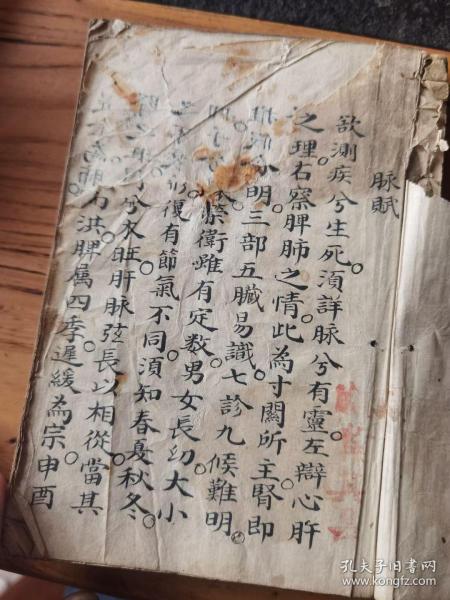 脉賦
欲測疾兮生死。須詳脉兮有靈。左辯心肝
之理。右察脾肺之情。此為寸關所主。腎即
分明。三部五臟易識。七診九候難明。
榮衛雖有定数。男女長幼大小
復有節氣不同。須知春夏秋冬。
兮木旺。肝脉弦長以相從。當其
洪。脾属四季。遲緩為宗。申酉
孔夫子旧书网
www.kongfz.com